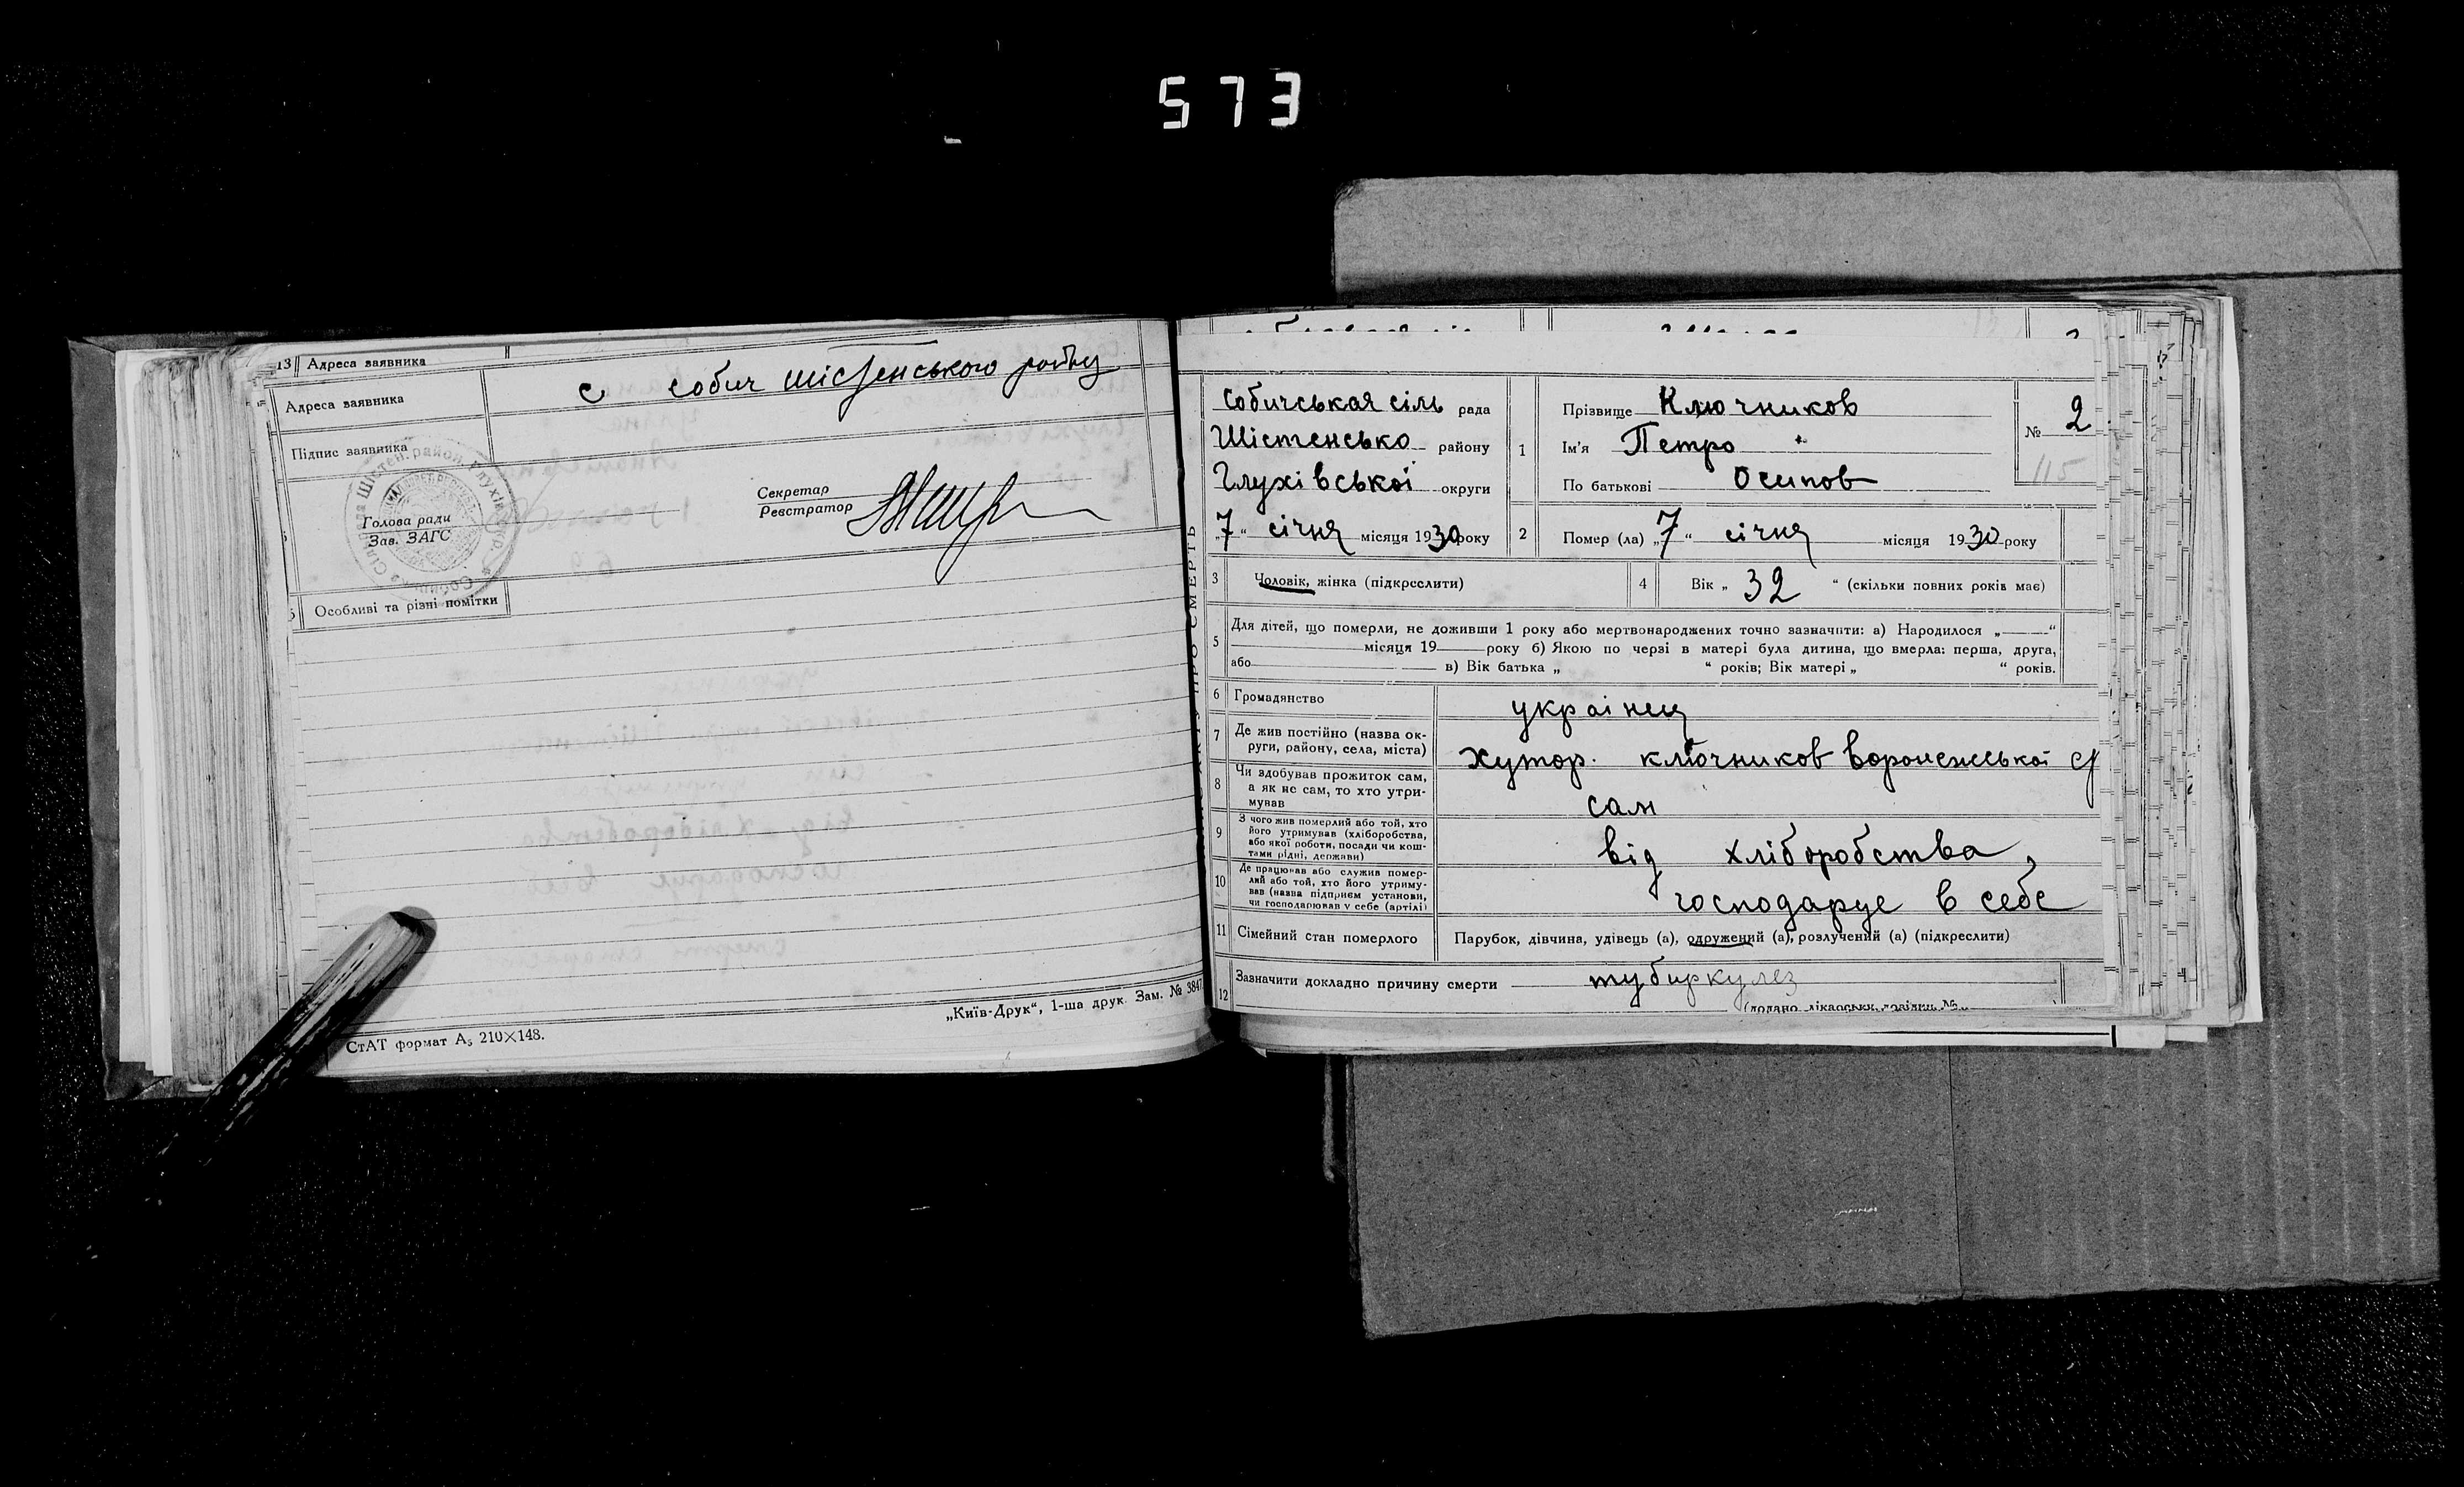 573
13 Адреса заявника
Адреса заявника с собич шістенського району
Підпис заявника
Голова ради
Зав. ЗАГС
Секретар
Реєстратор
Особливі та різні помітки
СтАТ формат А5 210×148.
„Київ-Друк“, 1-ша друк. Зам. № 3847
Собичськая сіль рада
Шістенсько району
Глухівської округи
„7“ січня місяця 1930 року
1 Прізвище Ключников
Ім'я Петро
По батькові Осипов
№ 2
115
2 Помер (ла) „7“ січня місяця 1930 року
3 Чоловік, жінка (підкреслити)
4 Вік „32“ (скільки повних років має)
5 Для дітей, що померли, не доживши 1 року або мертвонароджених точно зазначити: а) Народилося „ “
місяця 19 року б) Якою по черзі в матері була дитина, що вмерла: перша, друга,
або в) Вік батька „ “ років; Вік матері „ “ років.
6 Громадянство украінец
7 Де жив постійно (назва ок-
руги, району, села, міста) хутор. ключников воронежської
8 Чи здобував прожиток сам,
а як не сам, то хто утри-
мував сам
9 З чого жив померлий або той, хто
його утримував (хліборобства,
або якої роботи, посади чи кош-
тами рідні, держави) від хліборобства,
10 Де працював або служив помер-
лий або той, хто його утриму-
вав (назва підприєм установи,
чи господарював у себе (артілі) господарує в себе
11 Сімейний стан померлого Парубок, дівчина, удівець (а), одружений (а), розлучений (а) (підкреслити)
12 Зазначити докладно причину смерти тубиркулез